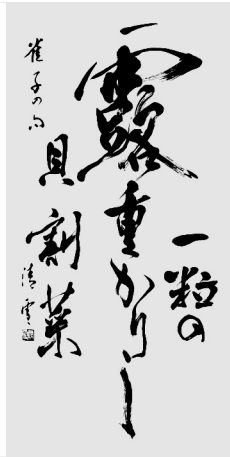 一粒の
露重かりし
貝割菜
雀子の句
清雲